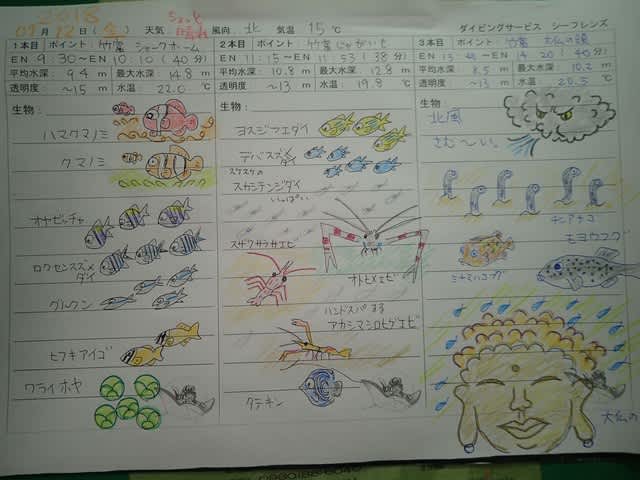 2018
12(金) 天気 ちょっと晴れ 風向 北 気温 15℃ ダイビングサービス シーフレンズ
1本目 ポイント: 竹富 シャークホーム
EN 9:30~EN 10:10(40分)
平均水深: 9.4 m 最大水深 14.8 m
透明度: ~15 m 水温 22.0 ℃
生物:
ハマクマノミ
クマノミ
オヤビッチャ
ロクセンスズメダイ
グルクン
ヒフキアイゴ
ワライボヤ
2本目 ポイント: 竹富じゃがいも
EN 11:15~EN 11:53(38分)
平均水深: 10.8 m 最大水深 12.8 m
透明度: ~13 m 水温 19.8 ℃
生物:
ヨスジフエダイ
デバスズメダイ
スケスケの
スカシテンジクダイ
いっぱい
スザクサラサエビ
オトヒメエビ
ハンドスパする
アカシマシロヒゲエビ
タテキン
3本目 ポイント: 竹富 大仏の鼻
平均水深: 8.5 m 最大水深 10.2 m
透明度: ~13 m 水温 20.5 ℃
生物:
北風
さむ~い。
チンアナゴ
モヨウフグ
ミナミハコフグ
大仏の